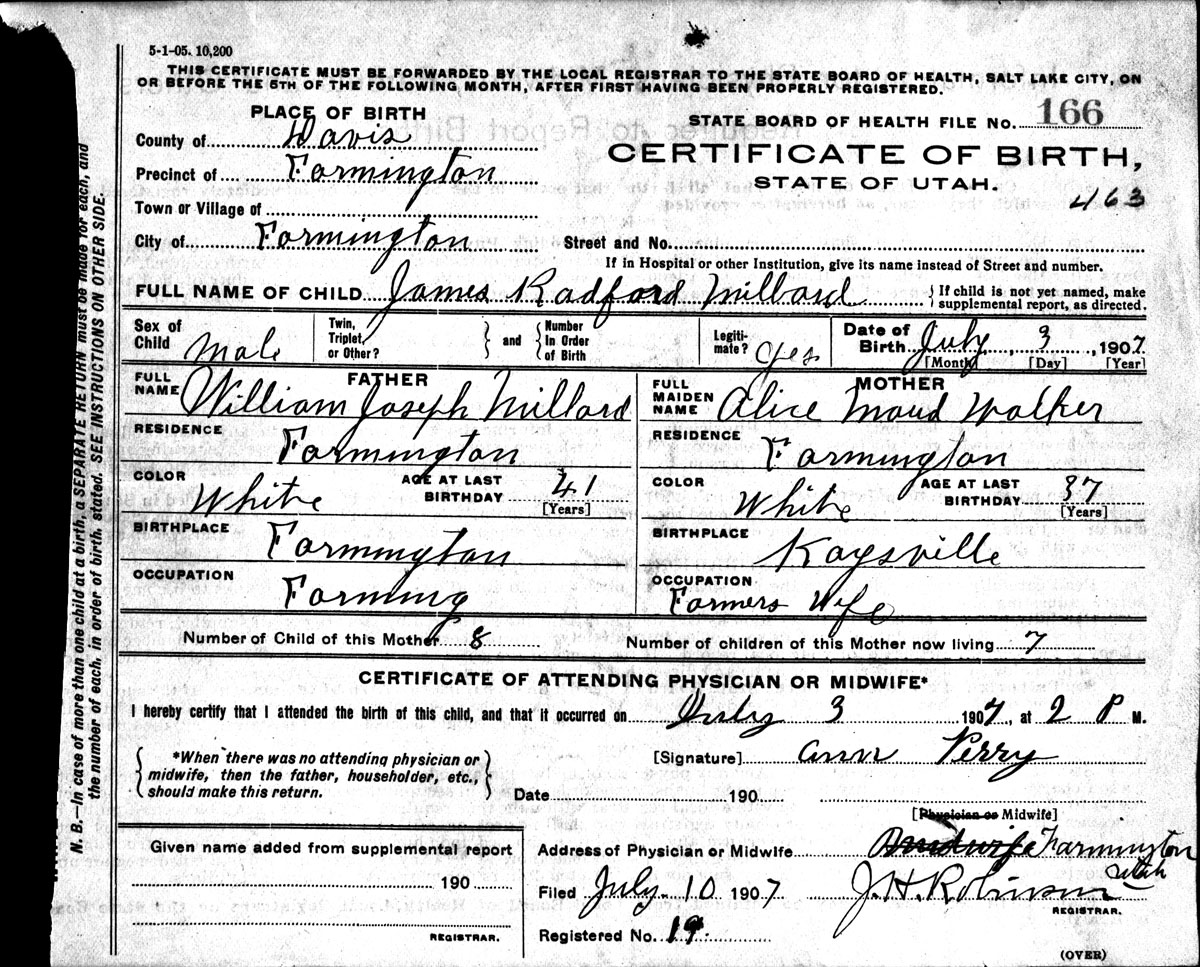 5-1-05. 10,200
THIS CERTIFICATE MUST BE FORWARDED BY THE LOCAL REGISTRAR TO THE STATE BOARD OF HEALTH, SALT LAKE CITY, ON
OR BEFORE THE 5TH OF THE FOLLOWING MONTH, AFTER FIRST HAVING BEEN PROPERLY REGISTERED.
PLACE OF BIRTH
County of Davis
Precinct of Farmington
Town or Village of
City of Farmington
STATE BOARD OF HEALTH FILE No. 166
CERTIFICATE OF BIRTH,
STATE OF UTAH.
463
Street and No.
If in Hospital or other Institution, give its name instead of Street and number.
FULL NAME OF CHILD James Radford Millard { If child is not yet named, make supplemental report, as directed.
Sex of Child Male Twin, Triplet, or Other? } and { Number in Order of Birth Legitimate? yes Date of Birth July, 3, 1907.
[Month] [Day] [Year]
FATHER
FULL NAME William Joseph Millard
RESIDENCE Farmington
COLOR White AGE AT LAST BIRTHDAY 41
[Years]
BIRTHPLACE Farmington
OCCUPATION Farming
MOTHER
FULL MAIDEN NAME Alice Maud Walker
RESIDENCE Farmington
COLOR White AGE AT LAST BIRTHDAY 37
[Years]
BIRTHPLACE Kaysville
OCCUPATION Farmers Wife
Number of Child of this Mother 8 Number of children of this Mother now living 7
CERTIFICATE OF ATTENDING PHYSICIAN OR MIDWIFE*
I hereby certify that I attended the birth of this child, and that it occurred on July 3 1907, at 2 P M.
*When there was no attending physician or
midwife, then the father, householder, etc.,
should make this return.
[Signature] Ann Perry
Date 190
[Physician or Midwife]
Given name added from supplemental report
190
REGISTRAR.
Address of Physician or Midwife Midwife Farmington
Utah
Filed July 10 1907 J. H. Robinson
REGISTRAR.
Registered No. 19.
(OVER)
N. B.—In case of more than one child at a birth, a SEPARATE RETURN must be made for each, and
the number of each, in order of birth, stated. SEE INSTRUCTIONS ON OTHER SIDE.